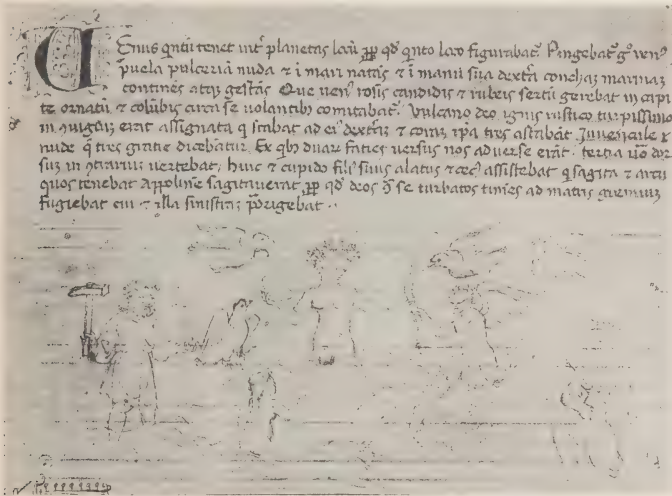 Enus q̄ntū tenet int̄ planetas locū ꝓꝑ qd̓ quinto loco figurabat᷑. Pingebat᷑ g° ven᷒
puela pulcerīa nuda ⁊ i mari natās ⁊ i manu sua dextra conchaz marinaz
continēs atq₃ gestās Que ven᷒ rosis candidis ⁊ rubeis sertū gerebat in capi
te ornatū ⁊ colūbis circa se volantib₃ comitabat᷑. Vulcano deo ignis rustico turpissimo
in assignata q stabat ad ei᷒ dextrā ⁊ coraz ip̄a tres astabāt Juvencule
nude q̄ tres gratie dicebātur. Ex qb₃ duar̄ facies versus nos adverse erāt. tertia v̄o dor
suz in ꝯtrariuz vertebat, huic ⁊ cupido fili᷒ suus alatus ⁊ cec᷒ assistebat q sagita ⁊ arcu
quos tenebat Appolinē sagitaverat, ꝓꝑ qd̓ deos ꝯ̄ se turbatos timēs ad matris gremiuz
fugiebat cui ⁊ illa sinistrā porigebat ··